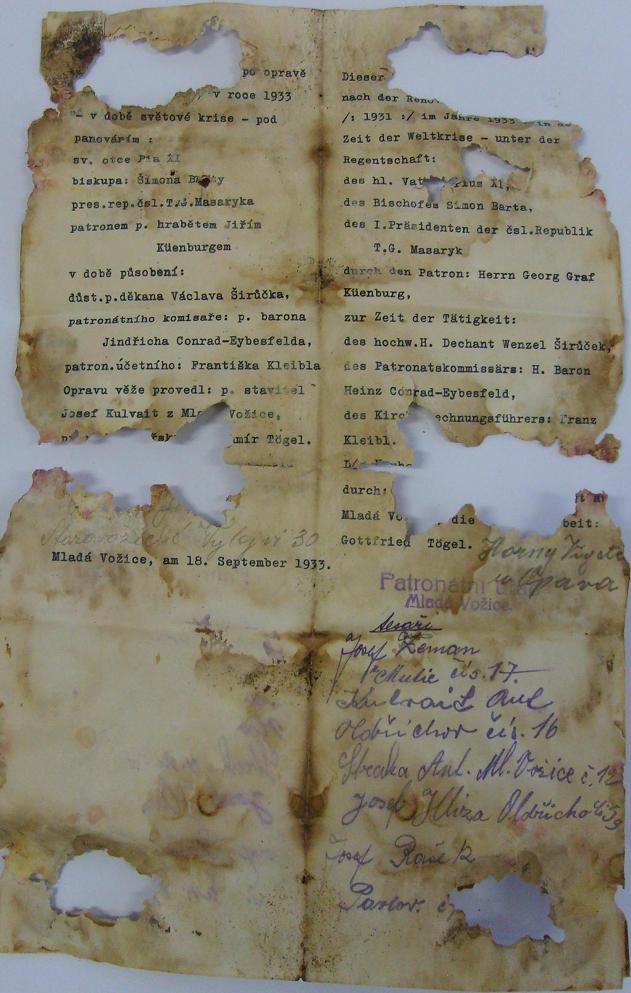 po opravě
v roce 1933
v době světové krise - pod
panováním :
sv. otce Pia XI
biskupa: Šimona
pres.rep.čsl.T.G.Masaryka
patronem p. hrabětem Jiřím
Küenburgem
v době působení:
důst.p.děkana Václava Širůčka,
patronátního komisaře: p. barona
Jindřicha Conrad-Eybesfelda,
patron.účetního: Františka Kleibla
Opravu věže provedl: p. stavitel
Josef Kulvait z Vožice,
Tögel.
30
Mladá Vožice, am 18. September 1933.
Dieser
nach der
/: 1931 :/ im Jahre 1933
Zeit der Weltkrise - unter der
Regentschaft:
des hl. XI,
des Bischofes Simon Barta,
des I.Präsidenten der čsl.Republik
T.G. Masaryk
durch den Patron: Herrn Georg Graf
Küenburg,
zur Zeit der Tätigkeit:
des hochw.H. Dechant Wenzel Širůček,
des Patronatskommissärs: H. Baron
Heinz Conrad-Eybesfeld,
des Franz
Kleibl.
durch:
Mladá die
Gottfried Tögel.
Opava
Mladá Vožice.
tesaři
Josef Zeman
čís. 17.
Kulvait Ant
Oldřichov čís. 16
Straka Ant. Ml. Vožice č. 12
Josef
Josef